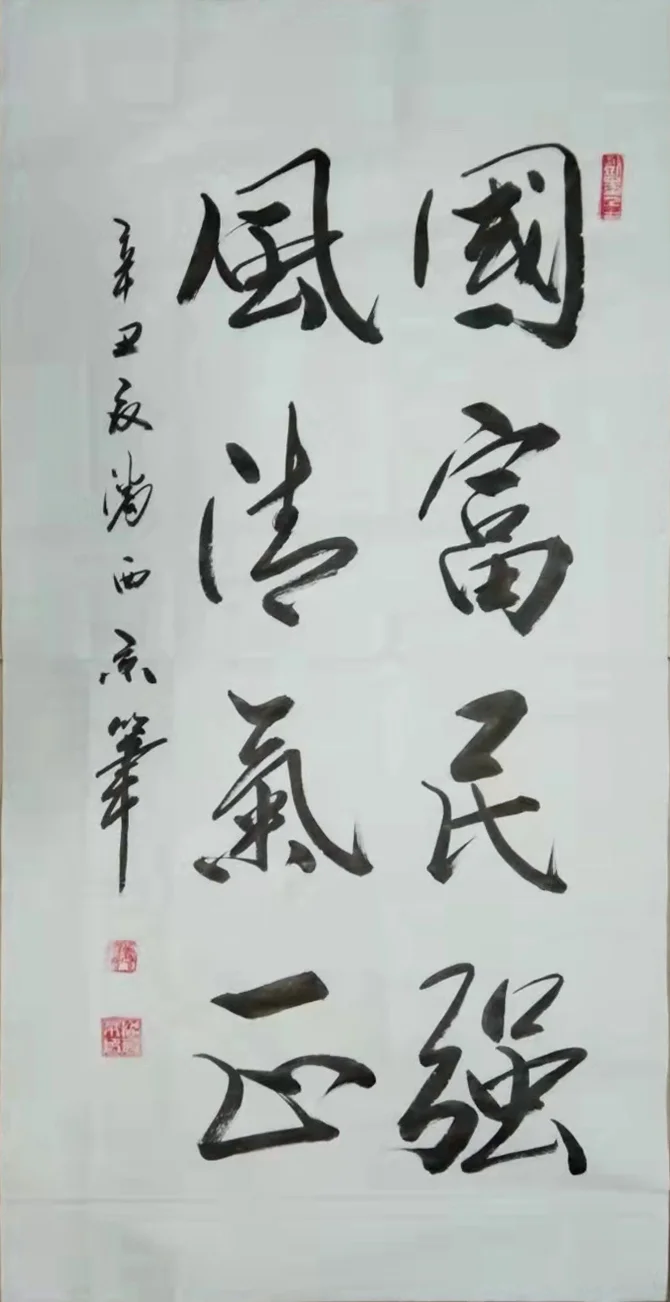 國富民强
風清氣正
辛丑夜满西京筆